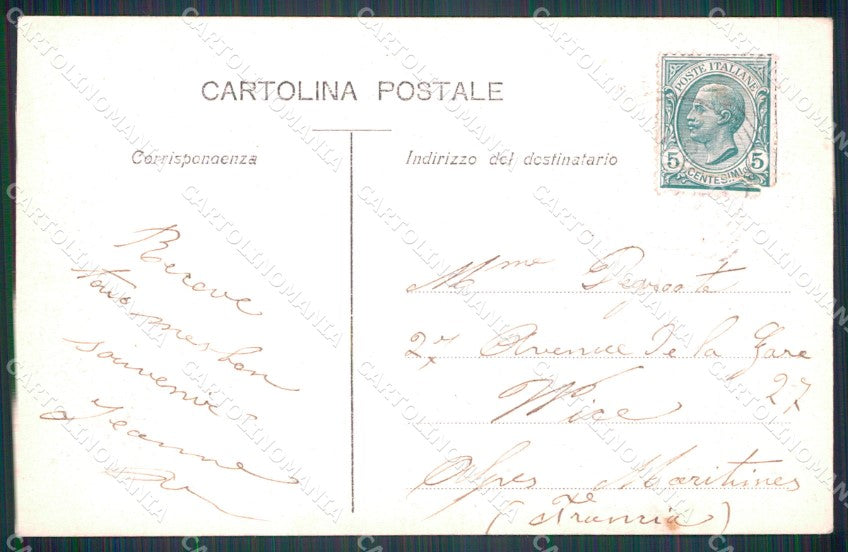 CARTOLINA POSTALE
POSTE ITALIANE
5 5
CENTESIMI
Corrispondenza
Indirizzo del destinatario
Receve
tous mes bon
souvenir
Jeanne
Mme
27 Avenue de la Gare
27
Nice
Alpes Maritimes
(Francia)
CARTOLINOMANIA